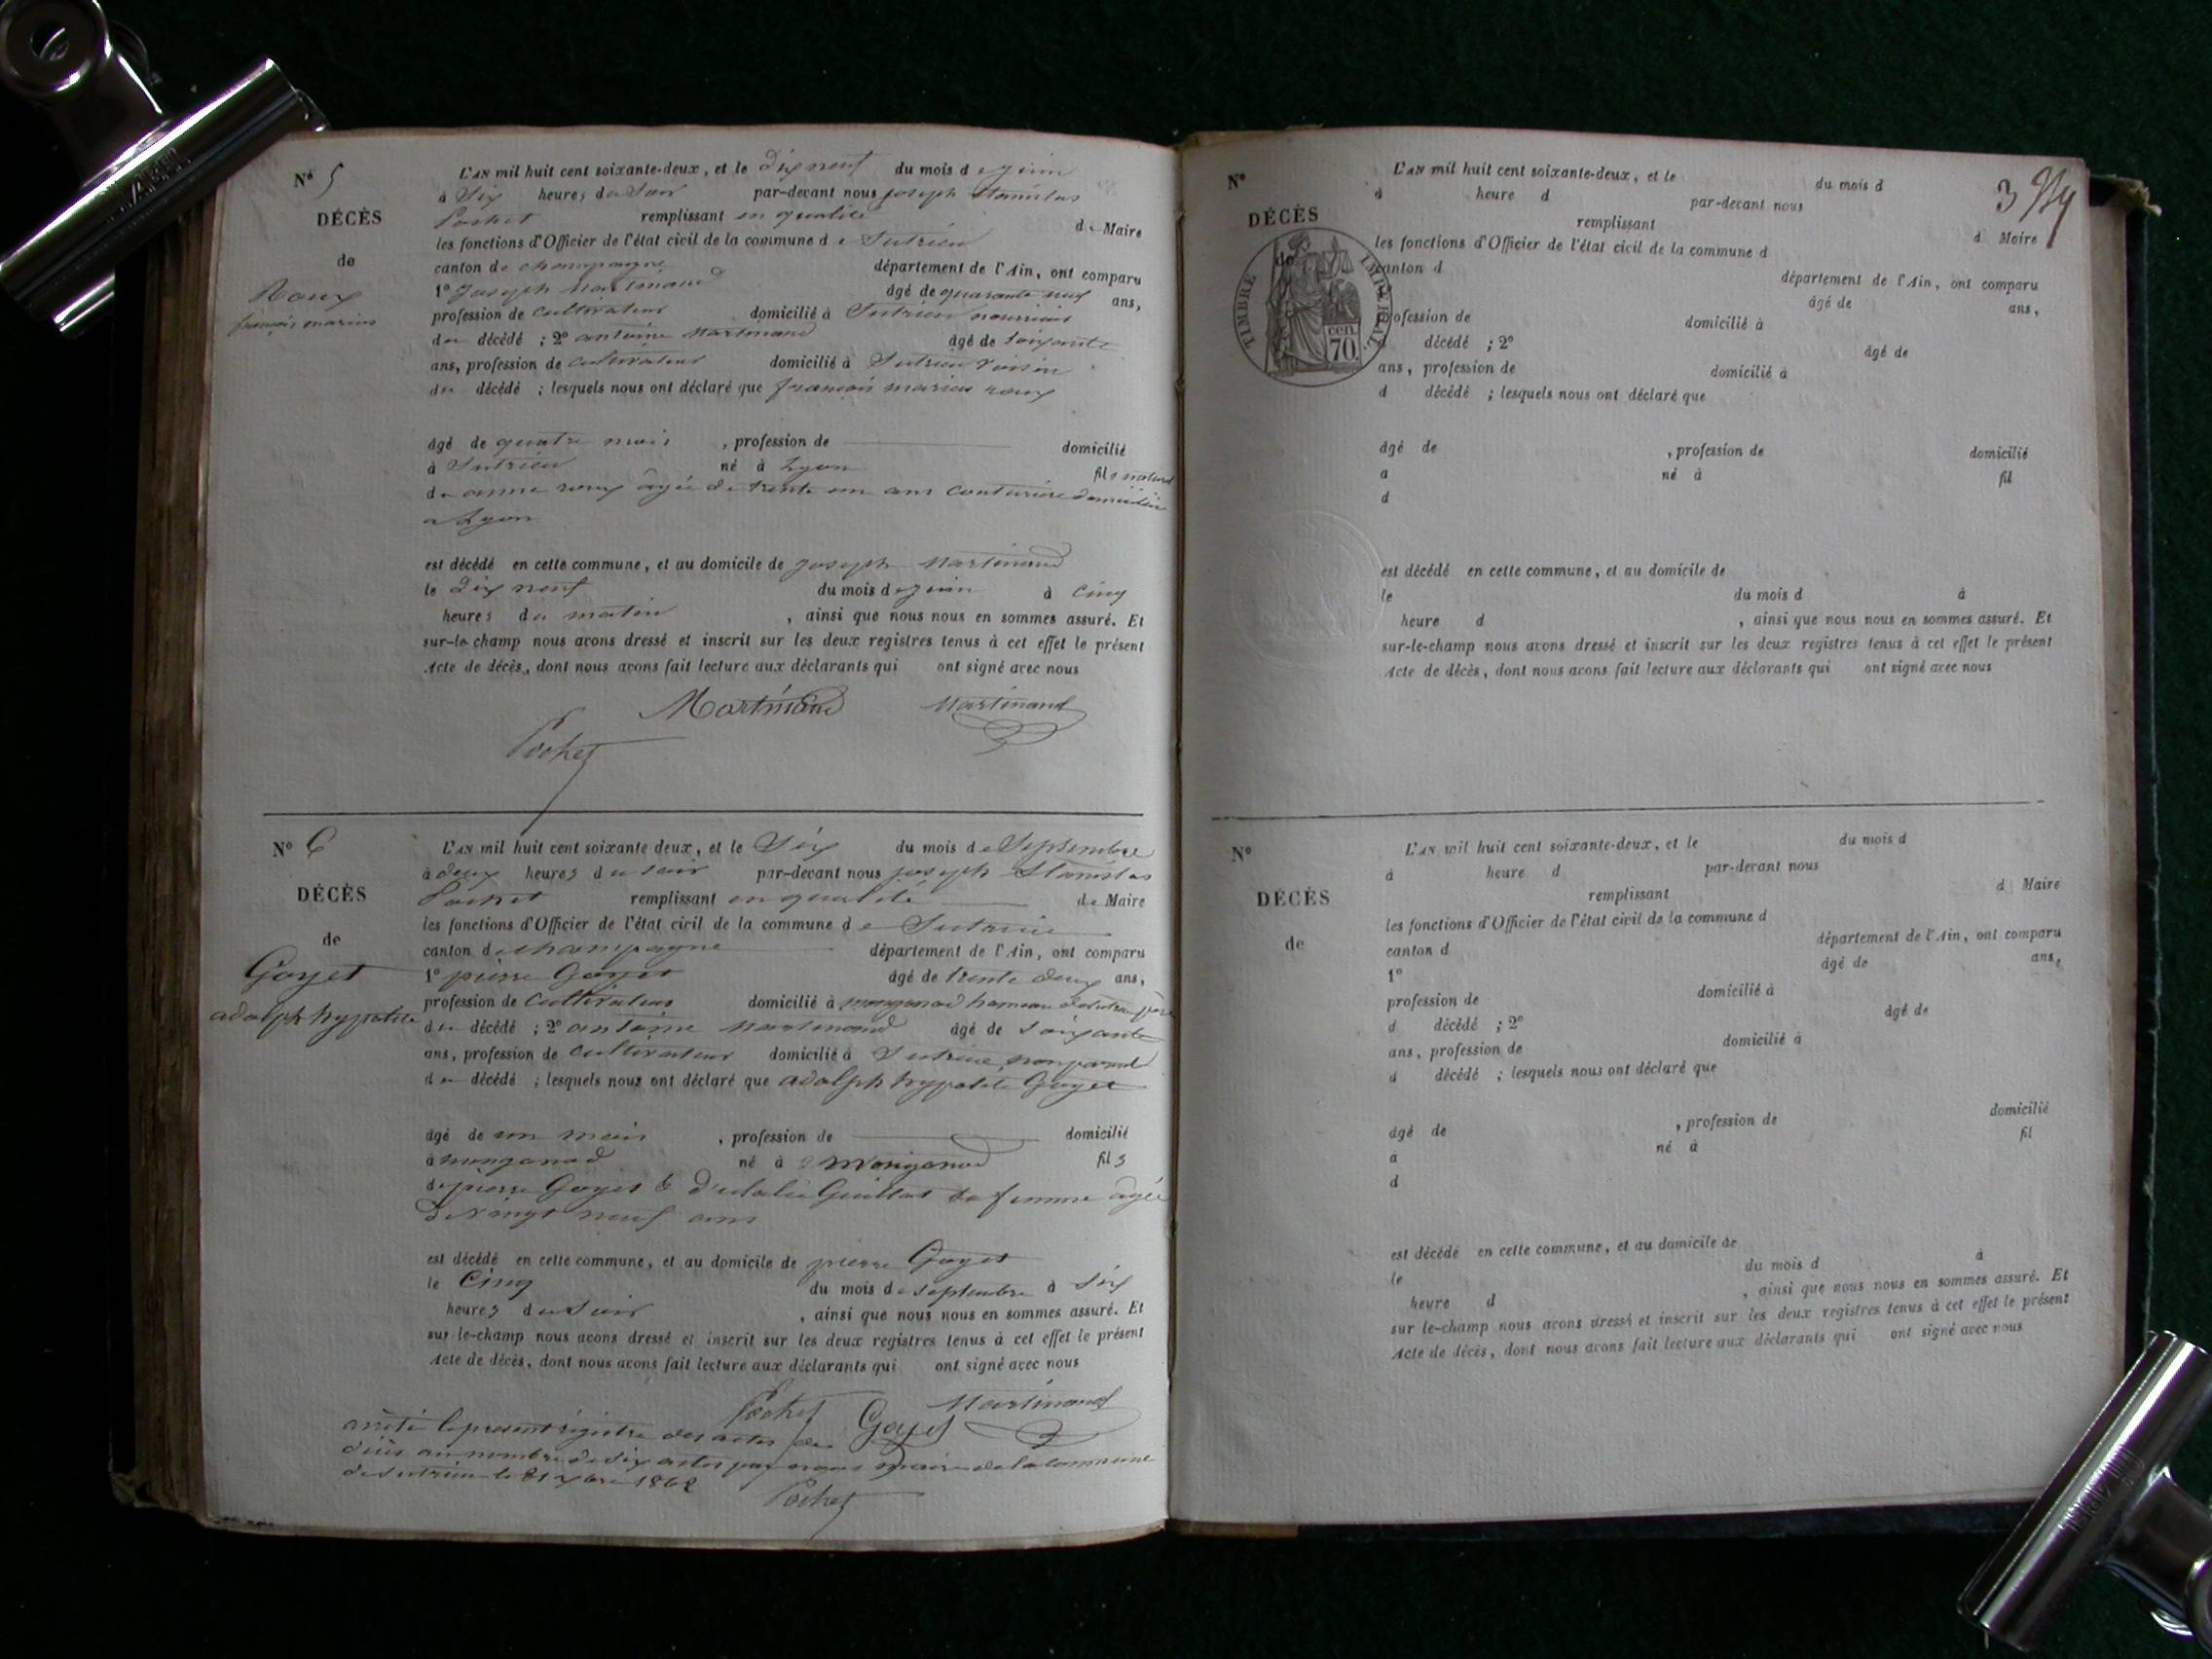 N° 5
DÉCÈS
de
Roux
françois marius
L'AN mil huit cent soixante-deux, et le dix neuf du mois de juin
à Six heures du Soir par-devant nous joseph Stanislas
Pochet remplissant en qualité de Maire
les fonctions d'Officier de l'état civil de la commune de Sutrieu
canton de champagne département de l'Ain, ont comparu
1° Joseph Martinand âgé de quarante neuf ans,
profession de cultivateur domicilié à Sutrieu nourricier
du décédé ; 2° antoine Martinand âgé de soixante
ans, profession de cultivateur domicilié à Sutrieu voisin
du décédé ; lesquels nous ont déclaré que françois marius roux
âgé de quatre mois , profession de domicilié
à Sutrieu né à Lyon fils naturel
de anne roux agée de trente un ans couturière domiciliée
a Lyon
est décédé en cette commune, et au domicile de joseph Martinand
le dix neuf du mois de juin à cinq
heures du matin , ainsi que nous nous en sommes assuré. Et
sur-le-champ nous avons dressé et inscrit sur les deux registres tenus à cet effet le présent
Acte de décès, dont nous avons fait lecture aux déclarants qui ont signé avec nous
Martinand Martinand
Pochet
N° 6
DÉCÈS
de
Goyet
adolph hypolite
L'AN mil huit cent soixante deux, et le Six du mois de Septembre
à deux heures du soir par-devant nous joseph Stanislas
Pochet remplissant en qualité de Maire
les fonctions d'Officier de l'état civil de la commune de Sutrieu
canton de champagne département de l'Ain, ont comparu
1° pierre Goyet âgé de trente deux ans,
profession de cultivateur domicilié à mongonod hameau de Sutrieu père
du décédé ; 2° antoine Martinand âgé de soixante
ans, profession de cultivateur domicilié à Sutrieu non parent
du décédé ; lesquels nous ont déclaré que adolph hypolite Goyet
âgé de un mois , profession de domicilié
à mongonod né à Mongonod fils
de pierre Goyet & d'eulalie Guillot sa femme agée
de vingt neuf ans
est décédé en cette commune, et au domicile de pierre Goyet
le Cinq du mois de septembre à six
heures du soir , ainsi que nous nous en sommes assuré. Et
sur le-champ nous avons dressé et inscrit sur les deux registres tenus à cet effet le présent
Acte de décès, dont nous avons fait lecture aux déclarants qui ont signé avec nous
Pochet Goyet Martinand
arrêté le present régistre des actes de
décés au nombre de six actes par nous maire de la commune
de Sutrieu le 31 xbre 1862
Pochet
3
N°
DÉCÈS
de
TIMBRE IMPÉRIAL
70 cen.
L'AN mil huit cent soixante-deux, et le du mois d
à heure d par-devant nous
remplissant d Maire
les fonctions d'Officier de l'état civil de la commune d
canton d département de l'Ain, ont comparu
âgé de ans,
profession de domicilié à
décédé ; 2° âgé de
ans, profession de domicilié à
d décédé ; lesquels nous ont déclaré que
âgé de , profession de domicilié
a né à fil
d
est décédé en cette commune, et au domicile de
le du mois d à
heure d , ainsi que nous nous en sommes assuré. Et
sur-le-champ nous avons dressé et inscrit sur les deux registres tenus à cet effet le présent
Acte de décès, dont nous avons fait lecture aux déclarants qui ont signé avec nous
N°
DÉCÈS
de
L'AN mil huit cent soixante-deux, et le du mois d
à heure d par-devant nous
remplissant d Maire
les fonctions d'Officier de l'état civil de la commune d
canton d département de l'Ain, ont comparu
1° âgé de ans,
profession de domicilié à
d décédé ; 2° âgé de
ans, profession de domicilié à
d décédé ; lesquels nous ont déclaré que
âgé de , profession de domicilié
a né à fil
d
est décédé en cette commune, et au domicile de
le du mois d à
heure d , ainsi que nous nous en sommes assuré. Et
sur le-champ nous avons dressé et inscrit sur les deux registres tenus à cet effet le présent
Acte de décès, dont nous avons fait lecture aux déclarants qui ont signé avec nous